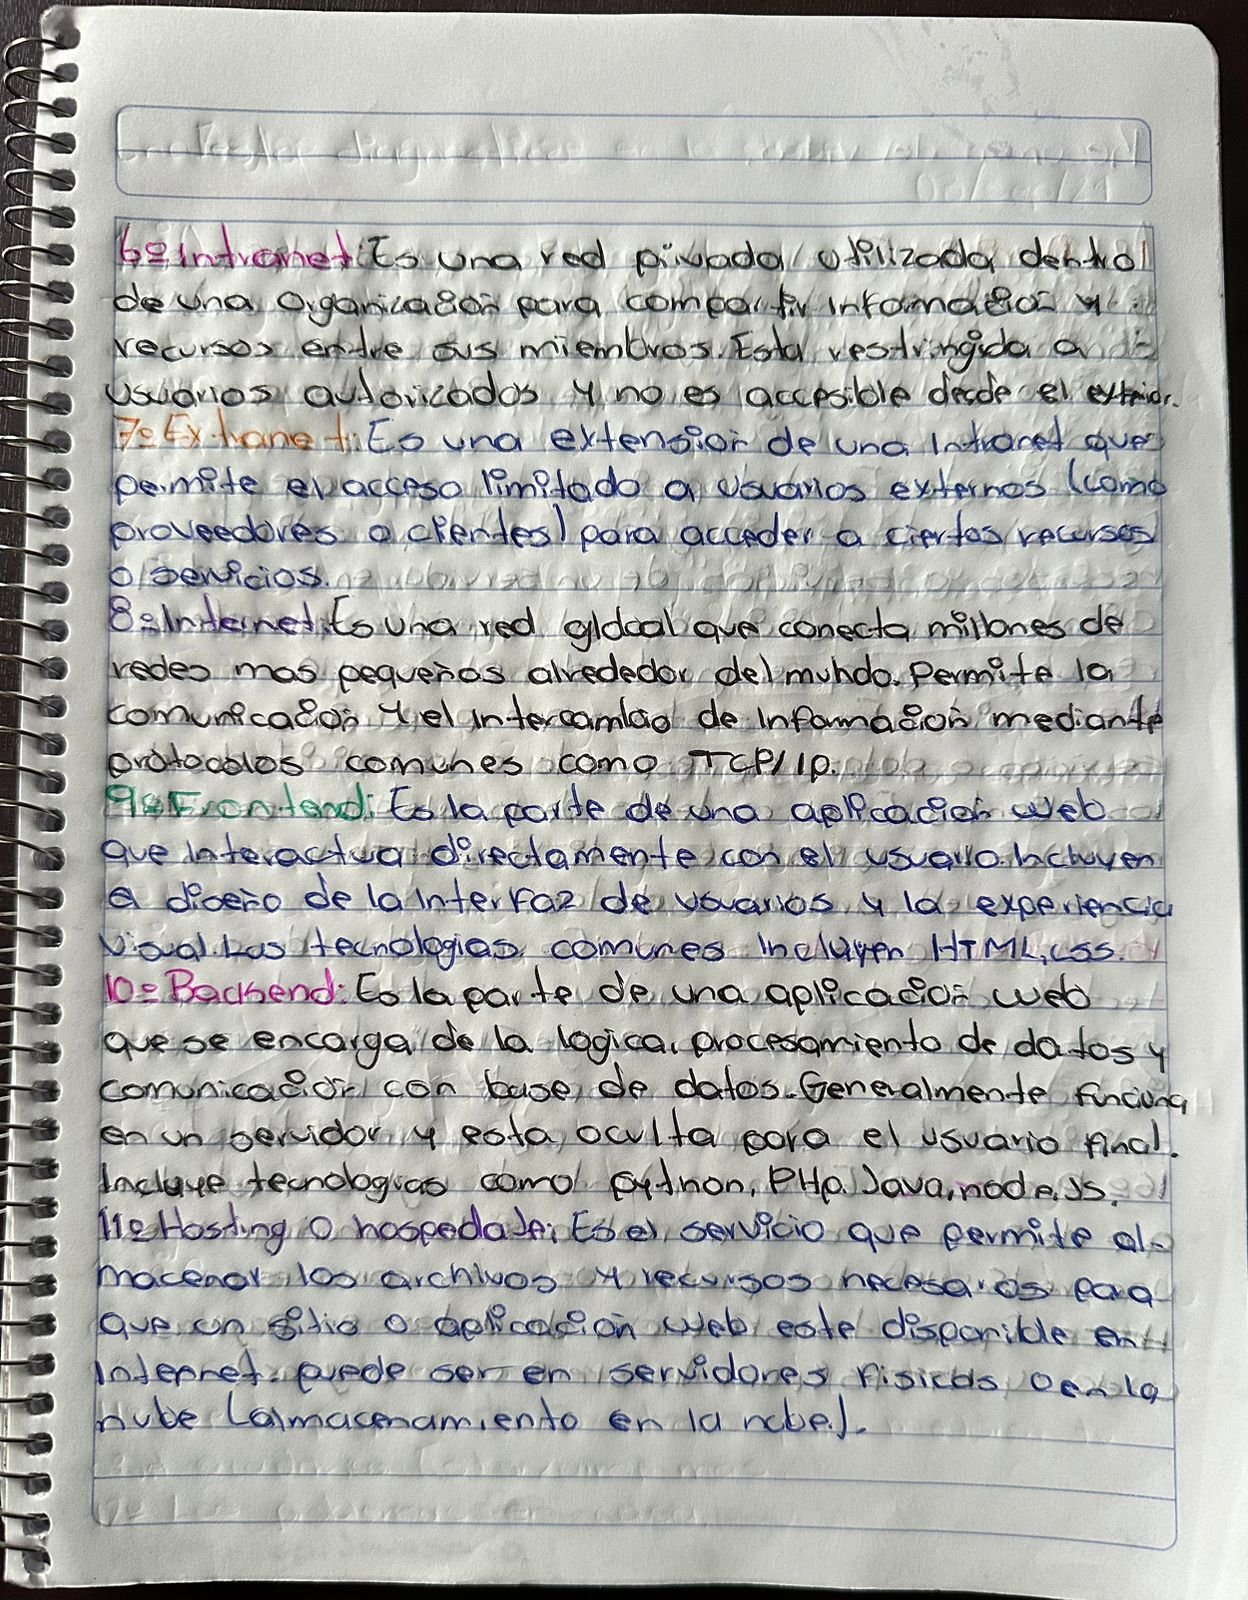 6º Intranet: Es una red privada utilizada dentro
de una organización para compartir información y
recursos entre sus miembros. Esta restringida a
usuarios autorizados y no es accesible desde el exterior.
7º Extranet: Es una extensión de una Intranet que
permite el acceso limitado a usuarios externos (como
proveedores o clientes) para acceder a ciertos recursos
o servicios.
8º Internet: Es una red global que conecta millones de
redes mas pequeñas alrededor del mundo. Permite la
comunicación y el intercambio de información mediante
protocolos comunes como TCP/Ip.
9º Frontend: Es la parte de una aplicación web
que interactua directamente con el usuario. Incluyen
el diseño de la interfaz de usuarios y la experiencia
visual. Las tecnologias comunes incluyen HTML, CSS.
10º Backend: Es la parte de una aplicación web
que se encarga de la logica, procesamiento de datos y
comunicación con base de datos. Generalmente funciona
en un servidor y esta oculta para el usuario final.
Incluye tecnologias como python, PHp. Java, node.Js.
11º Hosting o hospedaje: Es el servicio que permite al-
macenar los archivos y recursos necesarios para
que un sitio o aplicación web este disponible en
Internet. puede ser en servidores fisicos o en la
nube (almacenamiento en la nube).